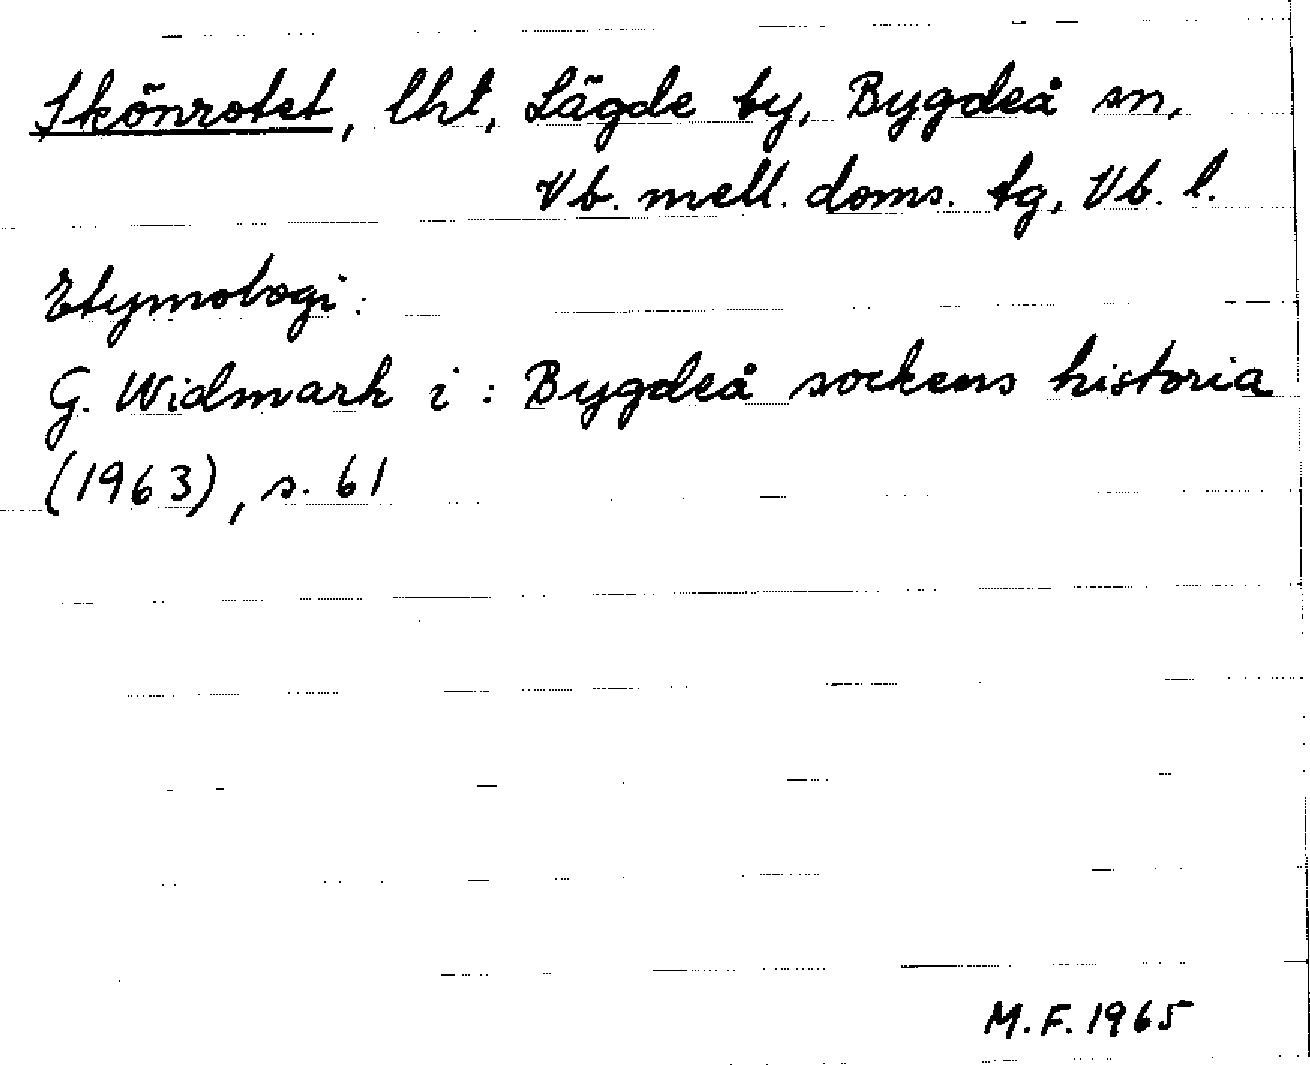 Skönrotet, lht, Lägde by, Bygdeå sn,
Vb. mell. doms. tg, Vb. l.
Etymologi:
G. Widmark i: Bygdeå sockens historia
(1963), s. 61
M.F. 1965